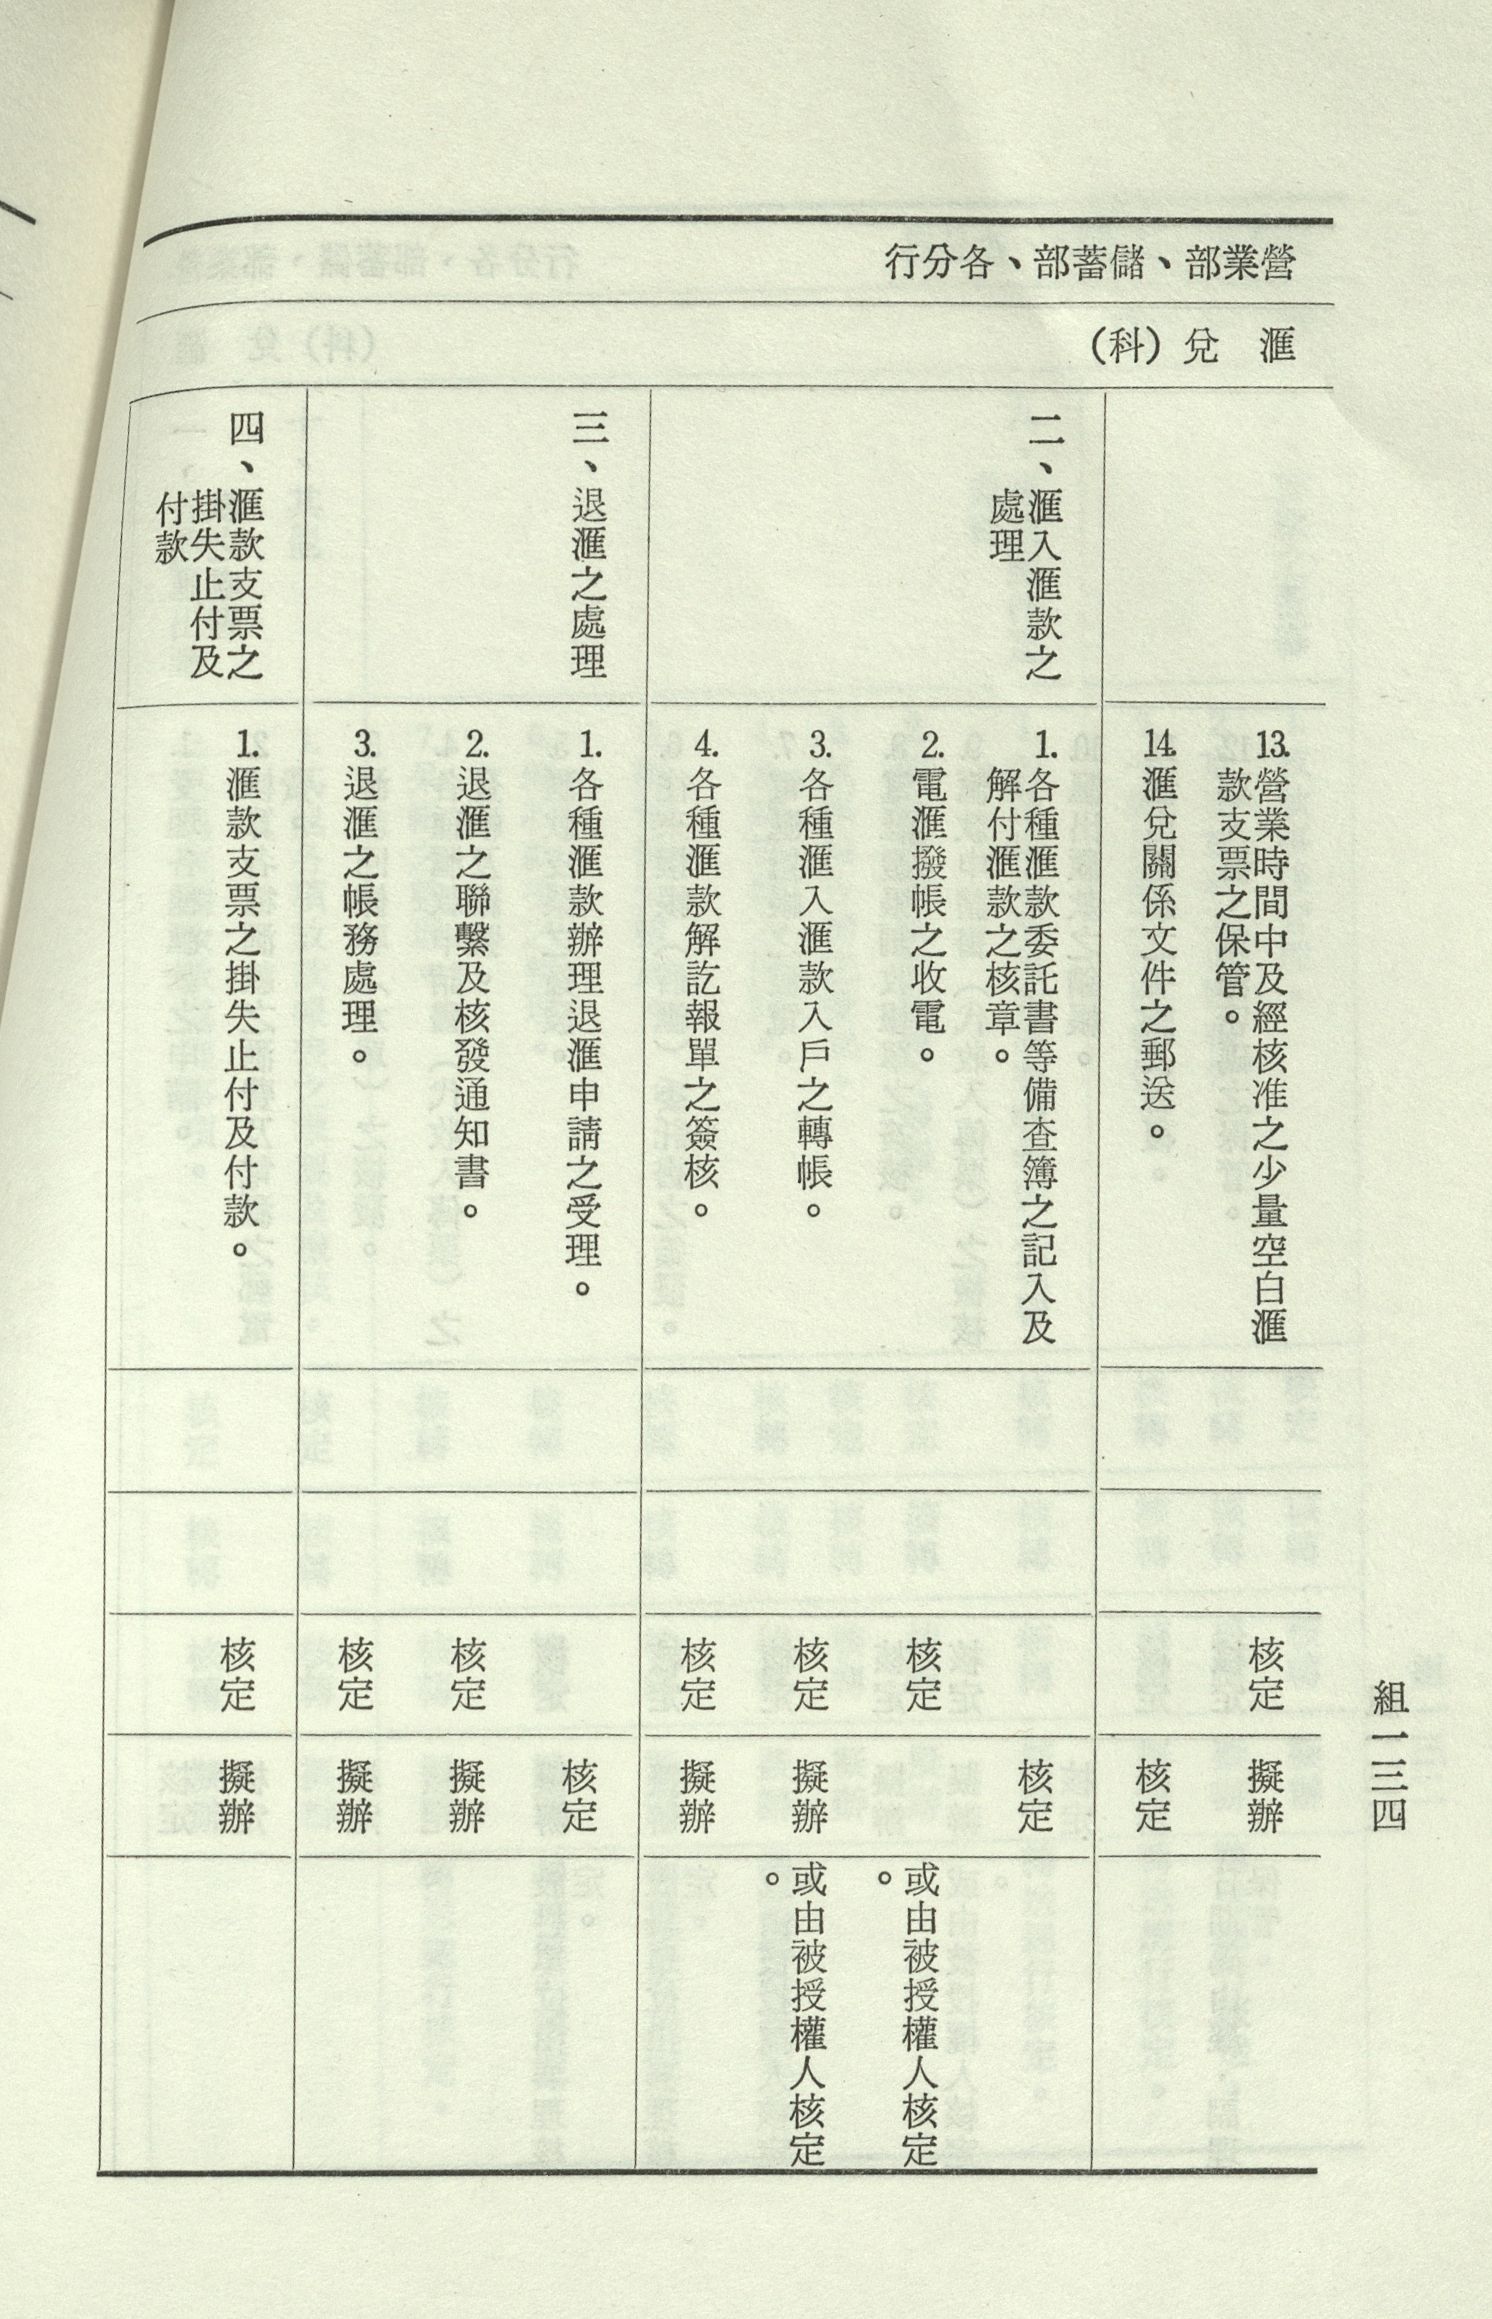 組一三四
營業部、儲蓄部、各分行
滙兌(科)
13.營業時間中及經核准之少量空白滙
款支票之保管。
核定
擬辦
14.滙兌關係文件之郵送。
核定
二、滙入滙款之
處理
1.各種滙款委託書等備查簿之記入及
解付滙款之核章。
核定
2.電滙撥帳之收電。
核定
或由被授權人核定
。
3.各種滙入滙款入戶之轉帳。
核定
擬辦
或由被授權人核定
。
4.各種滙款解訖報單之簽核。
核定
擬辦
三、退滙之處理
1.各種滙款辦理退滙申請之受理。
核定
2.退滙之聯繫及核發通知書。
核定
擬辦
3.退滙之帳務處理。
核定
擬辦
四、滙款支票之
掛失止付及
付款
1.滙款支票之掛失止付及付款。
核定
擬辦